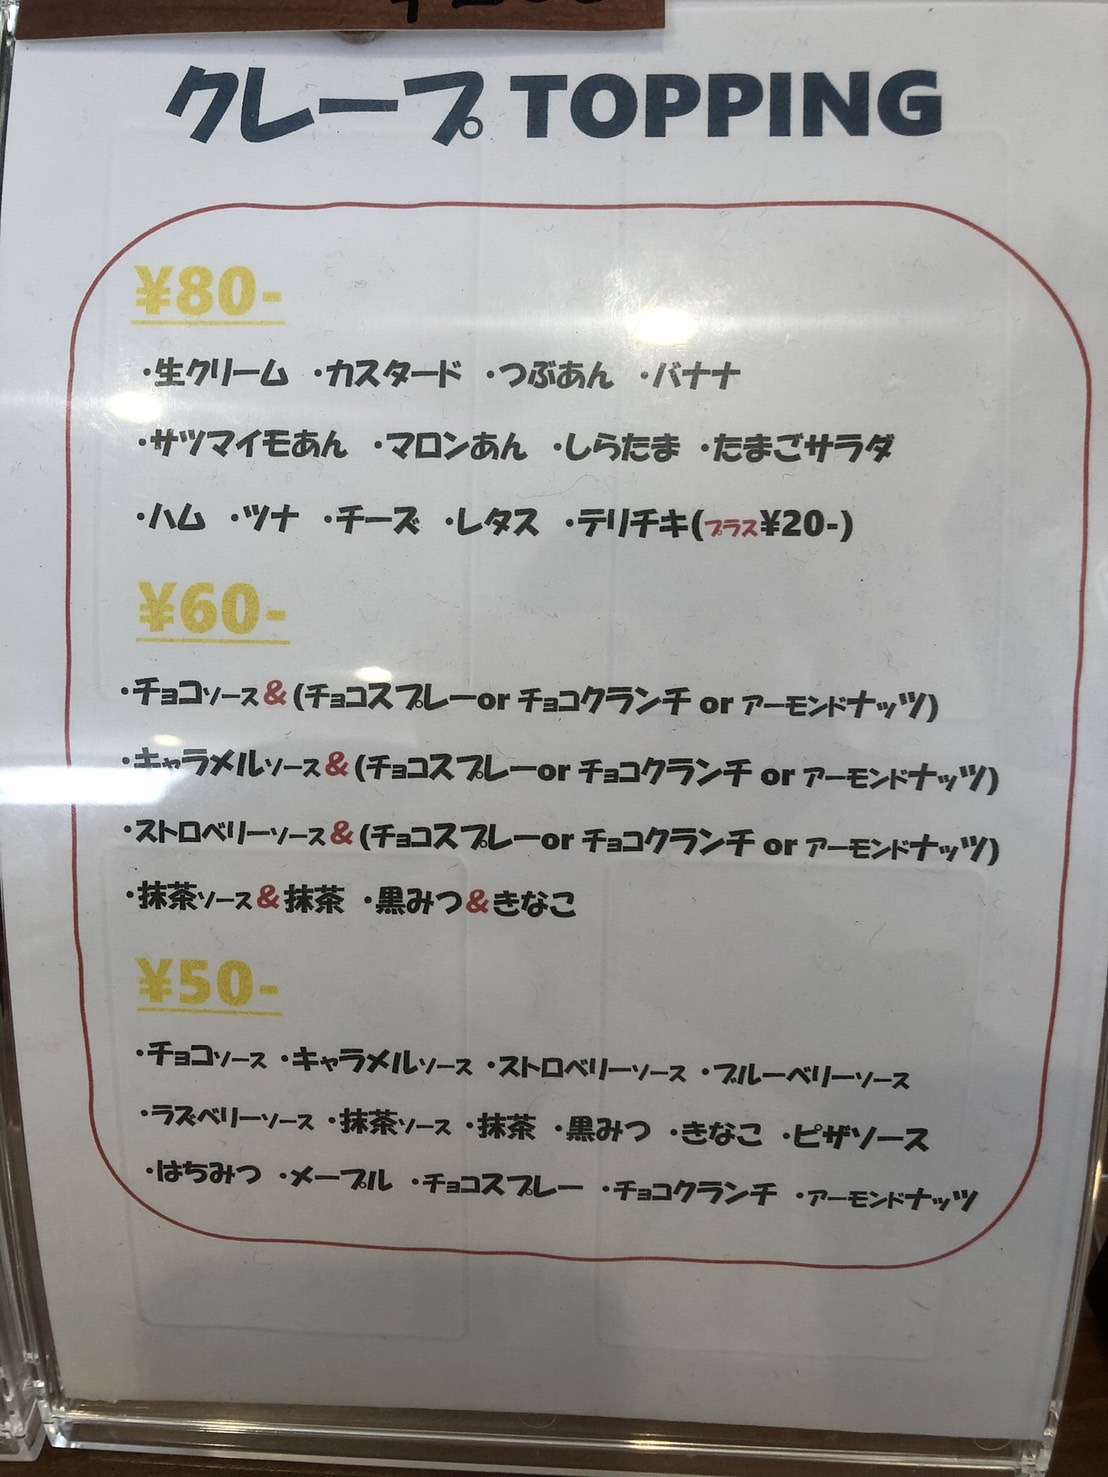 クレープ TOPPING
¥80-
・生クリーム ・カスタード ・つぶあん ・バナナ
・サツマイモあん ・マロンあん ・しらたま ・たまごサラダ
・ハム ・ツナ ・チーズ ・レタス ・テリチキ(プラス¥20-)
¥60-
・チョコソース&(チョコスプレーor チョコクランチ or アーモンドナッツ)
・キャラメルソース&(チョコスプレーor チョコクランチ or アーモンドナッツ)
・ストロベリーソース&(チョコスプレーor チョコクランチ or アーモンドナッツ)
・抹茶ソース&抹茶 ・黒みつ&きなこ
¥50-
・チョコソース ・キャラメルソース ・ストロベリーソース ・ブルーベリーソース
・ラズベリーソース ・抹茶ソース ・抹茶 ・黒みつ ・きなこ ・ピザソース
・はちみつ ・メープル ・チョコスプレー ・チョコクランチ ・アーモンドナッツ